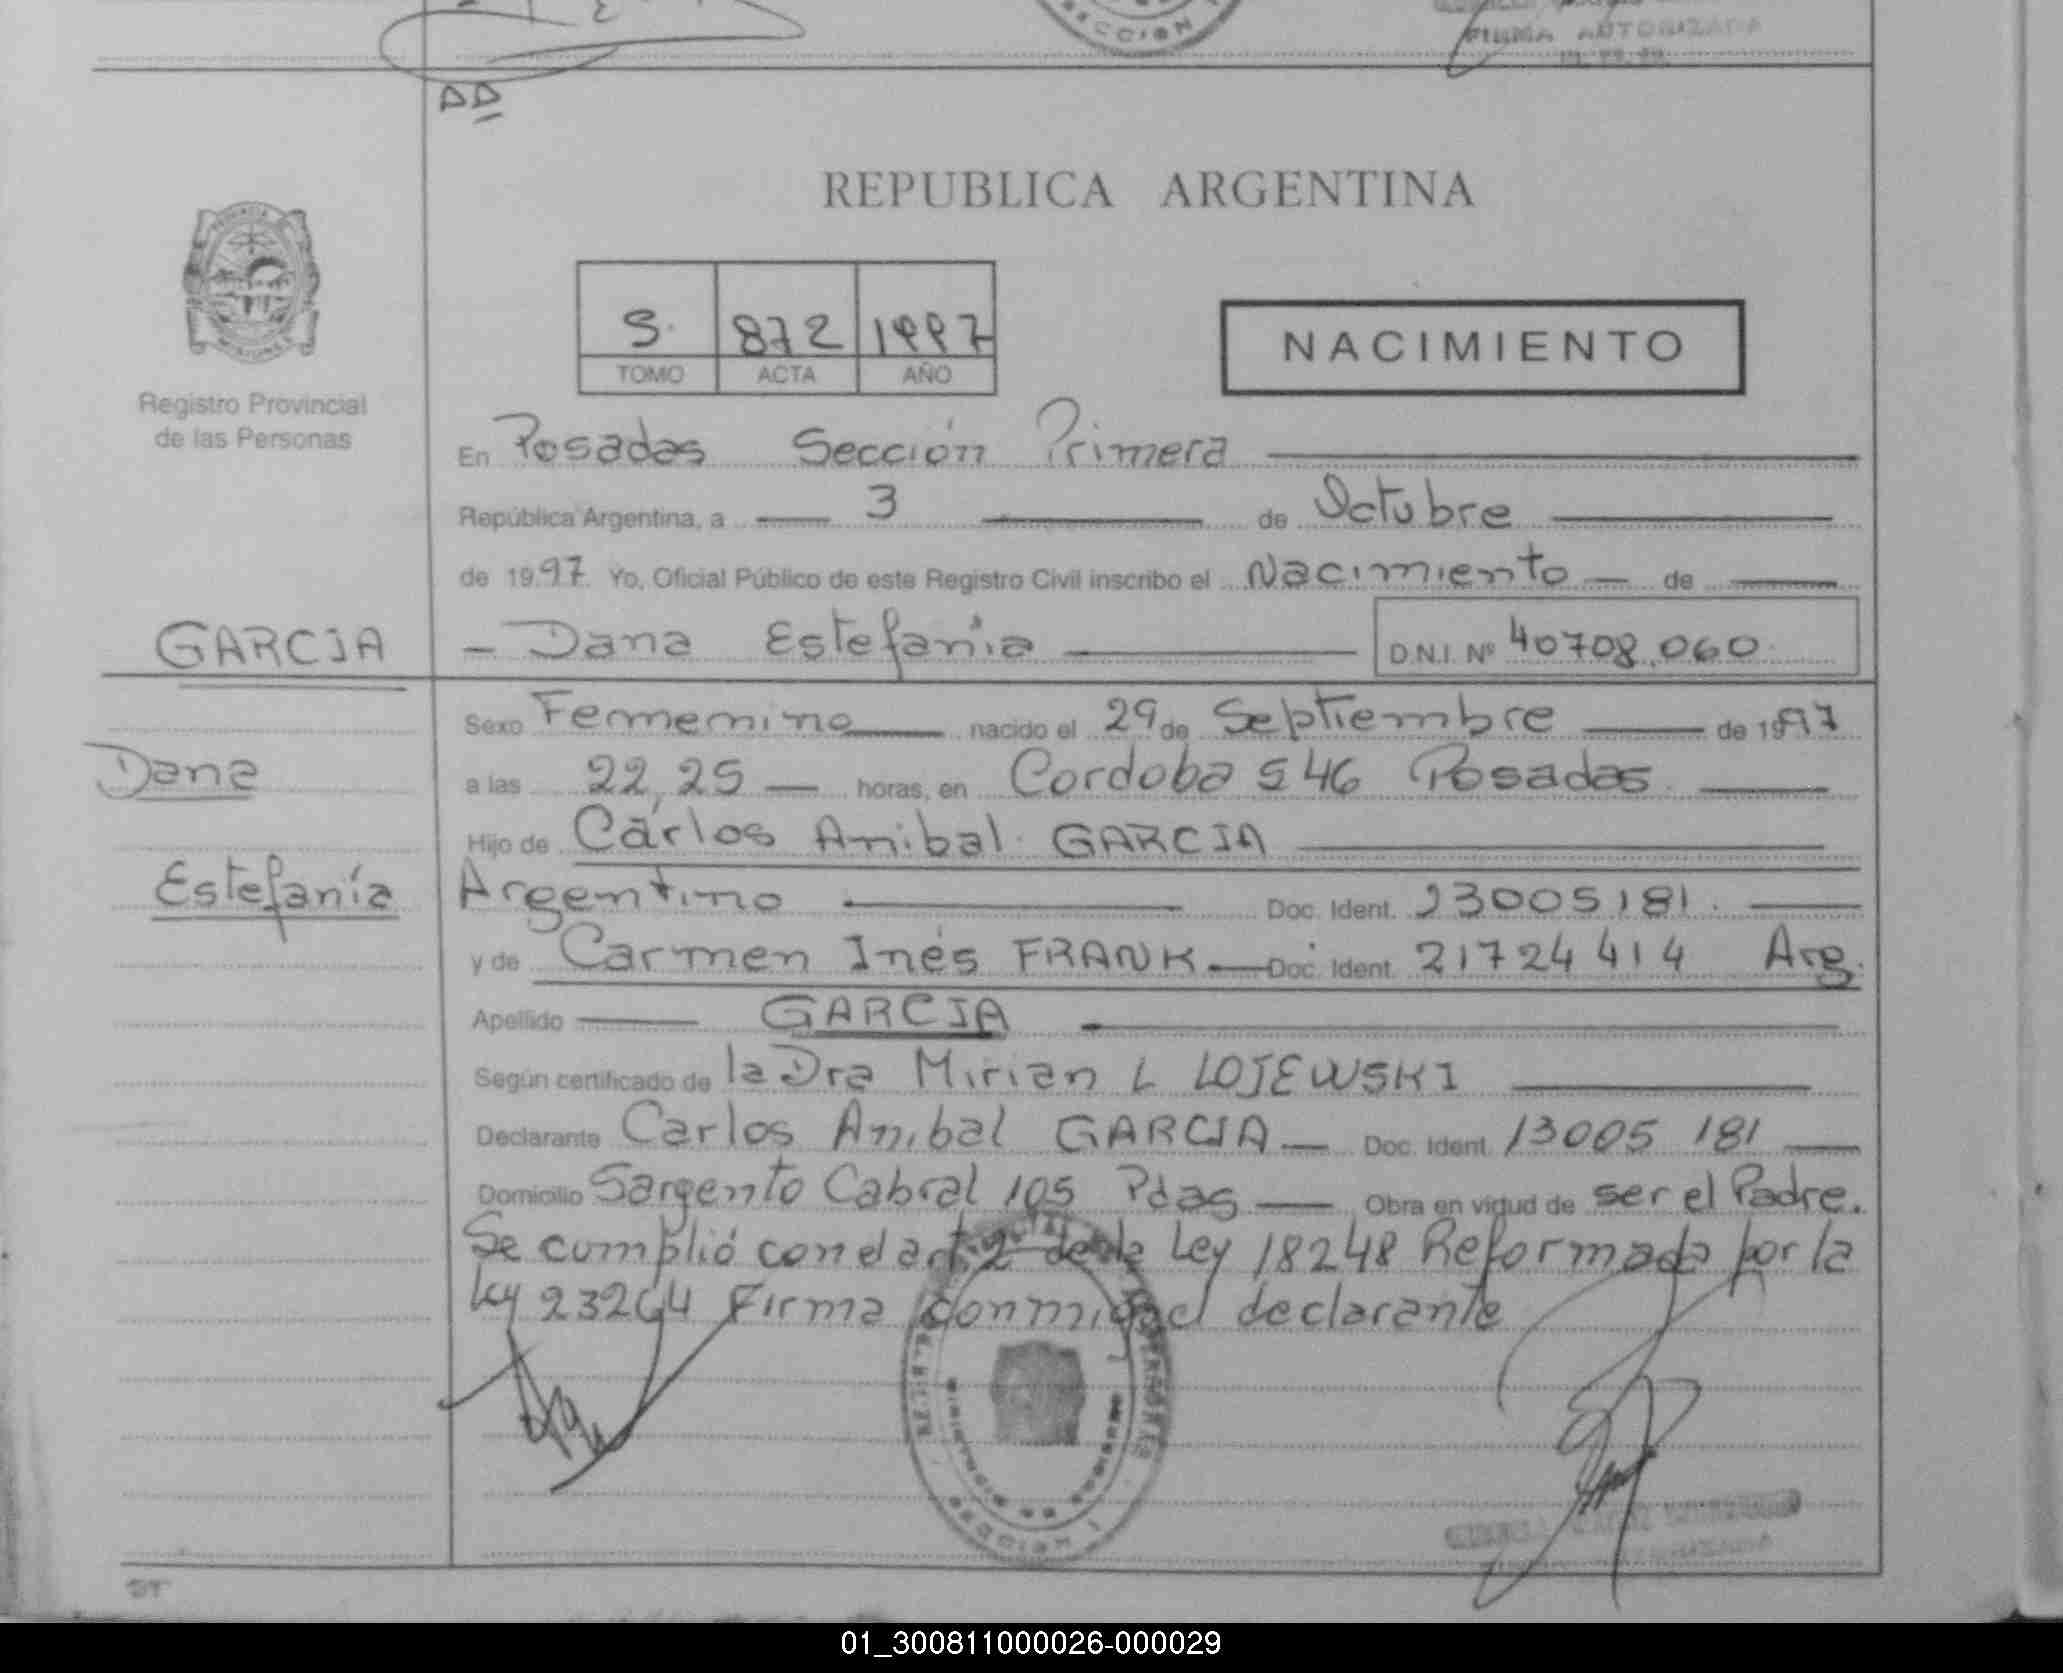 SECCION
FIRMA AUTORIZADA
DD
REPUBLICA ARGENTINA
PROVINCIA
MISIONES
S. 872 1997
TOMO ACTA AÑO
NACIMIENTO
Registro Provincial
de las Personas
En Posadas Sección Primera
República Argentina, a 3 de Octubre
de 1997 Yo, Oficial Público de este Registro Civil inscribo el Nacimiento de
GARCIA
Dana Estefanía D.N.I. Nº 40708.060
Dana
Estefanía
Sexo Femmenino nacido el 29 de Septiembre de 1997
a las 22,25 horas, en Cordoba 546 Posadas
Hijo de Carlos Anibal GARCIA
Argentino Doc. Ident. 23005181.
y de Carmen Inés FRANK Doc. Ident. 21724414 Arg.
Apellido GARCIA
Según certificado de la Dra Mirian L LOJEWSKI
Declarante Carlos Anibal GARCIA Doc. Ident. 13005 181
Domicilio Sargento Cabral 105 Pdas Obra en virtud de ser el Padre.
Se cumplió con el art 2 de la Ley 18248 Reformada por la
Ley 23264 Firma conmigo el declarante
SECCION 1
01_300811000026-000029